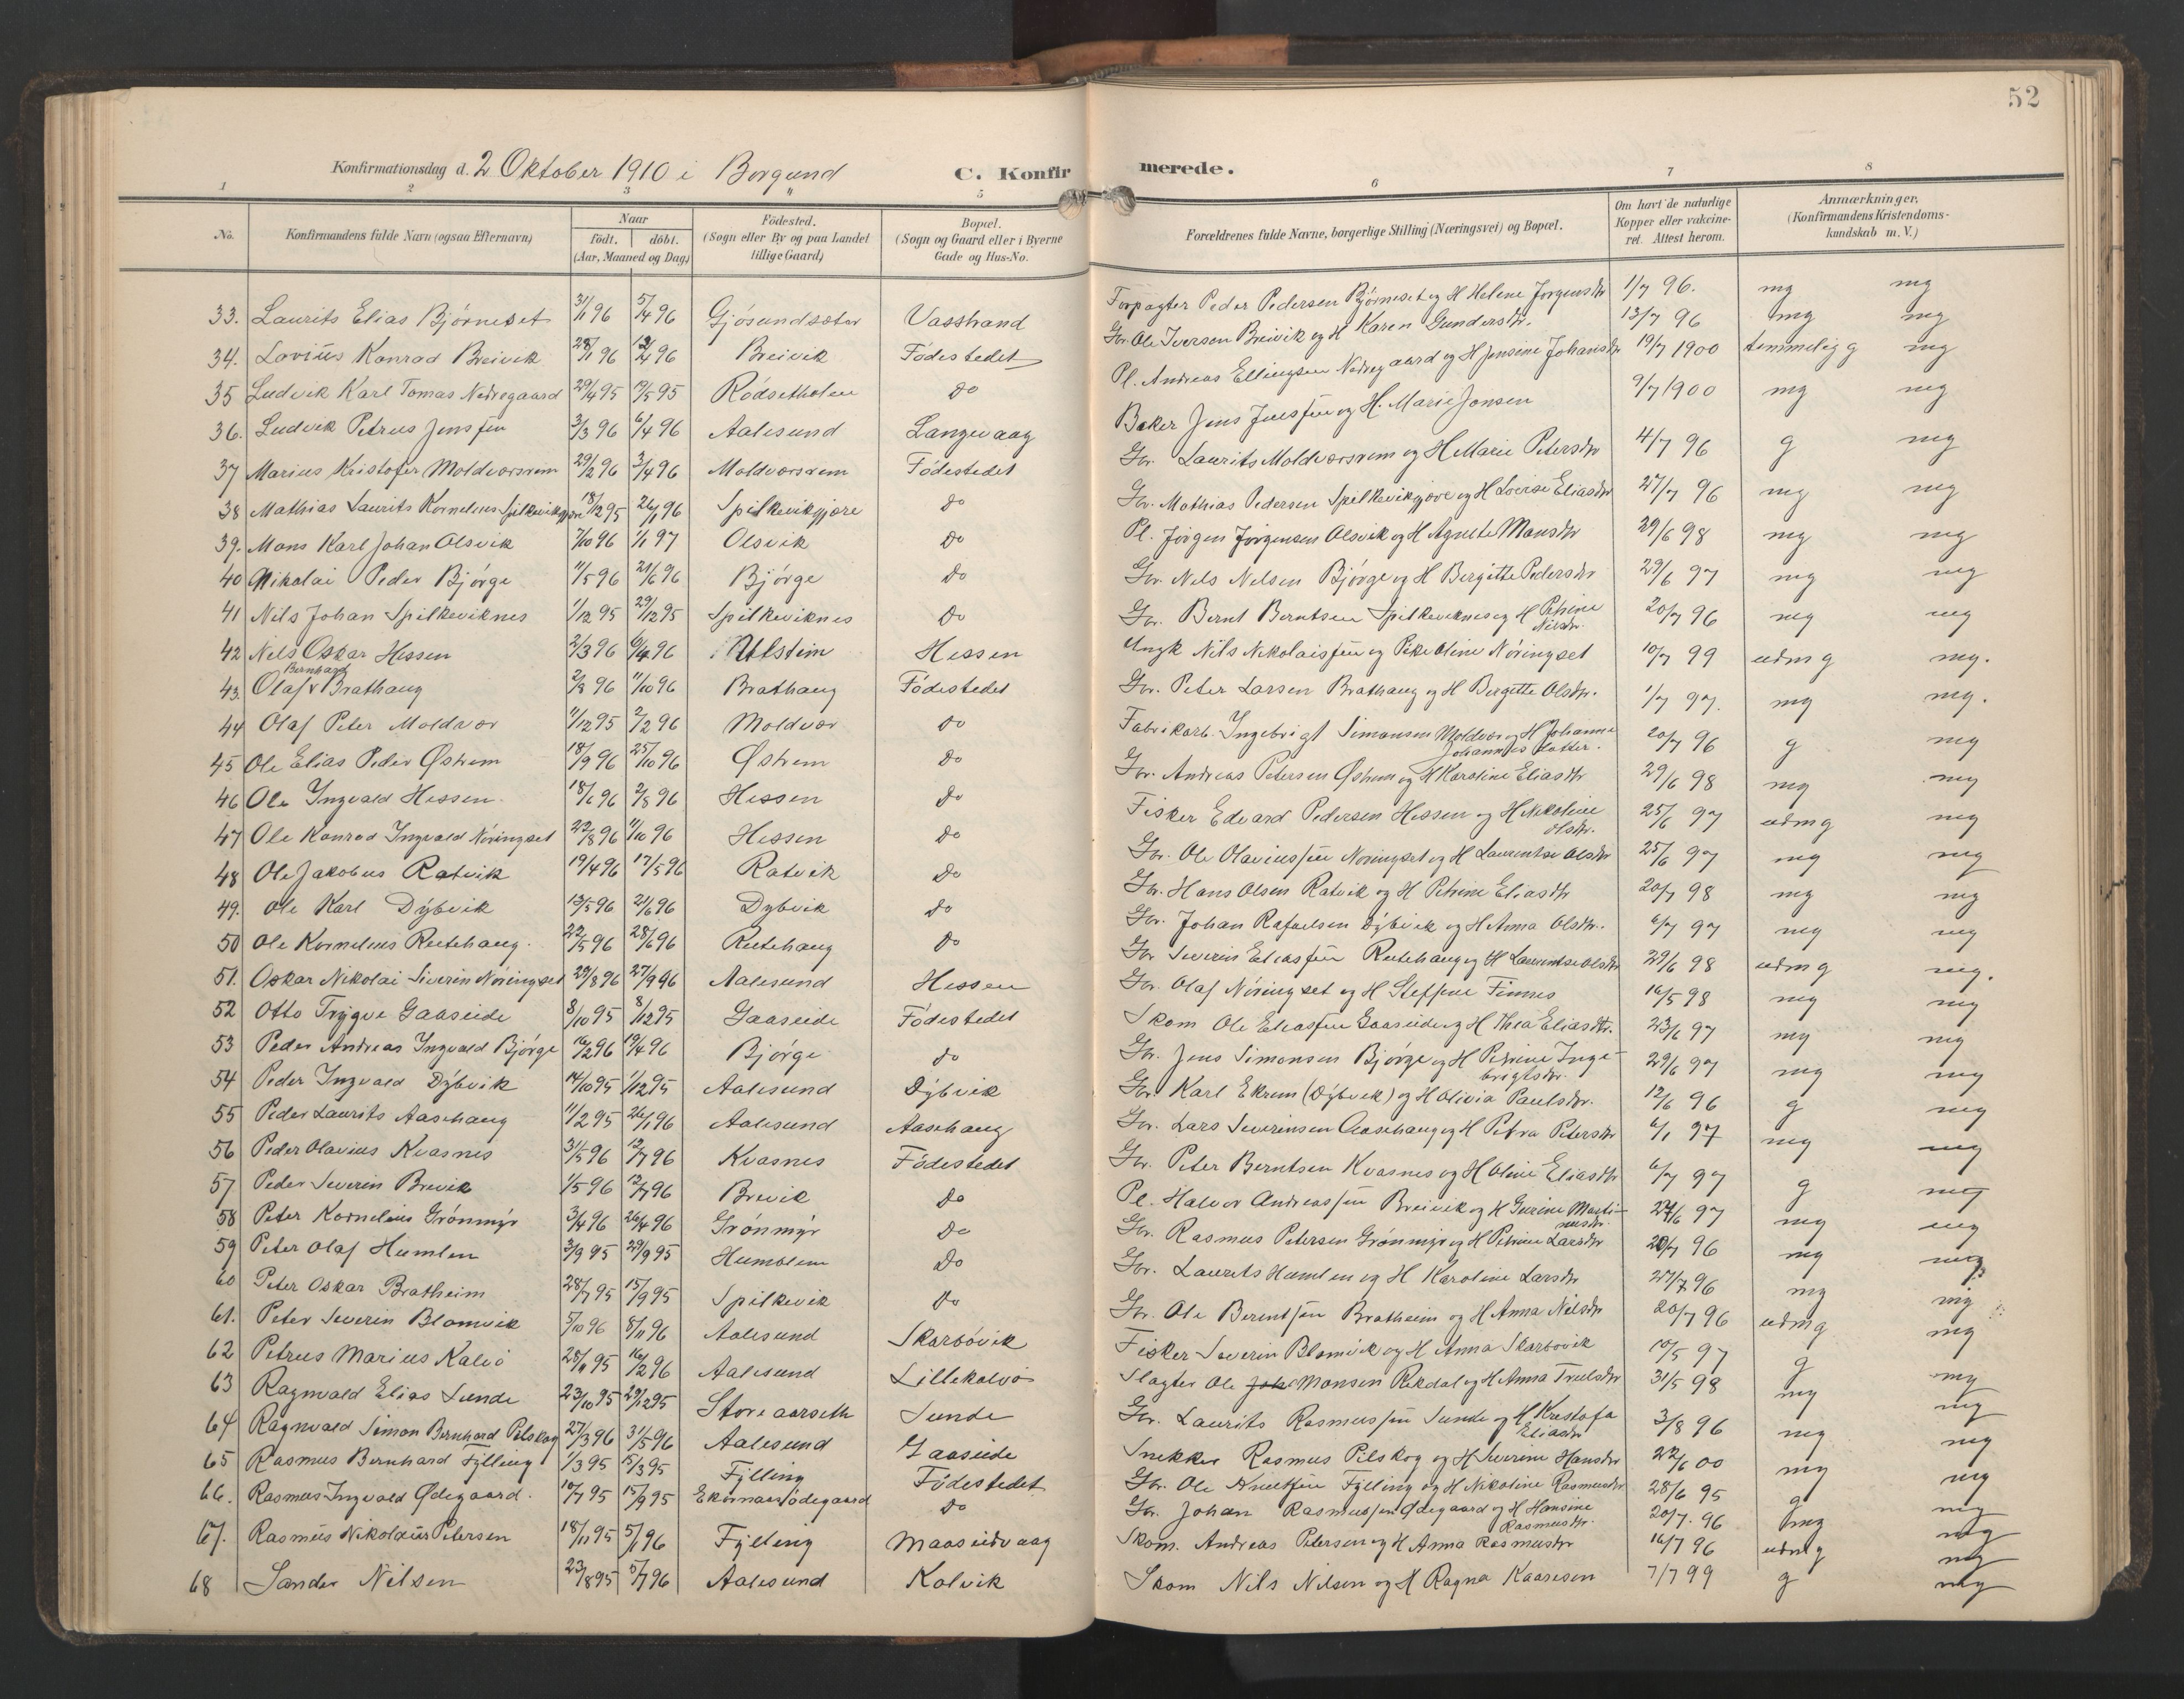 52
Konfirmationsdag d. 2 Oktober 1910 i Borgund C. Konfirmerede.
1 2 3 " 5 6 7 8
No. Konfirmandens fulde Navn (ogsaa Efternavn) Naar födt. döbt. (Aar, Maaned og Dag) Födested. (Sogn eller By og paa Landet tillige Gaard) Bopæl. (Sogn og Gaard eller i Byerne Gade og Hus-No. Forældrenes fulde Navne, borgerlige Stilling (Næringsvei) og Bopæl. Om havt de naturlige Kopper eller vakcineret. Attest herom. Anmærkninger. (Konfirmandens Kristendomskundskab m. V.)
33. Laurits Elias Bjørneset 31/1 96 5/4 96 Gjøsundsæter Vasstrand Forpagter Peder Pedersen Bjørneset og H Helene Jørgensdtr 1/7 96. mg mg
34. Lovius Konrad Breivik 28/1 96 12/4 96 Breivik Födestedet Gbr. Ole Iversen Breivik og H Karen Gundersdtr. 13/7 96 mg mg
35 Ludvik Karl Tomas Nedregaard 29/4 95 19/5 95 Rödsetholen do Pl. Andreas Ellingsen Nedregaard og H Jensine Johansdtr 19/7 1900 temmelig g mg
36. Ludvik Petrus Jenssen 3/3 96 6/4 96 Aalesund Langevaag Baker Jens Jenssen og H. Marie Jonsen 9/7 1900 mg mg
37 Marius Kristofer Moldværsrem 29/2 96 3/4 96 Moldværsrem Födestedet Gbr. Laurits Moldværsrem og H Marie Petersdtr 4/7 96 g mg
38 Mathias Laurits Kornelius Spilkevikgjære 18/12 95 26/1 96 Spilkevikgjære do Gbr. Mathias Pedersen Spilkevikgjære og H Lovise Eliasdtr 27/7 96 mg mg
39. Mons Karl Johan Olsvik 7/10 96 1/1 97 Olsvik Do Pl. Jörgen Jörgensen Olsvik og H Agnete Monsdtr 29/6 98 mg mg
40 Nikolai Peder Bjørge 11/5 96 21/6 96 Bjørge Do Gbr. Nels Nelsen Bjørge og H Bergitte Pedersdtr 29/6 97 mg mg
41 Nils Johan Spilkeviknes 1/12 95 29/12 95 Spilkeviknes Do Gbr. Bernt Berntsen Spilkeviknes og H Petrine Nilsdtr. 20/7 96 mg mg
42 Nels Oskar Hessen 2/3 96 6/4 96 Ulstein Hessen Ungk Nils Nikolaissen og Pike Oline Nöringset 10/7 99 udmg mg.
43. Olaf Bernhard Brathaug 2/8 96 11/10 96 Brathaug Födestedet Gbr. Peter Larsen Brathaug og H Bergitte Olsdtr. 1/7 97. mg mg.
44 Olaf Peter Moldvær 11/12 95 2/2 96 Moldvær Do Fabrikarb. Ingebrigt Simonsen Moldvær og H Johanne Johannes datter. 20/7 96 g mg
45 Ole Elias Peder Østrem 18/9 96 25/10 96 Østrem Do Gbr. Andreas Petersen Østrem og H Karoline Eliasdtr 29/6 98 mg mg
46 Ole Ingvald Hessen. 18/6 96 2/8 96 Hessen Do Fisker Edvard Pedersen Hessen og H Nikoline Olsdtr. 25/6 97 udmg mg
47 Ole Konrad Ingvald Nöringset 22/8 96 11/10 96 Hessen Do Gbr. Ole Olaviussen Nöringset og H Laurentse Olsdtr 25/6 97 mg mg
48 Ole Jakobus Ratvik 19/4 96 17/5 96 Ratvik Do Gbr. Hans Olsen Ratvik og H Petrine Eliasdtr 20/7 98 mg mg
49. Ole Karl Dybvik 13/5 96 21/6 96 Dybvik do Gbr. Johan Rafaelsen Dybvik og H Anna Olsdtr. 6/7 97 mg mg
50 Ole Kornelius Reitehaug. 22/5 96 28/6 96 Reitehaug Do Gbr Severin Eliassen Reitehaug og H Laurentse Olsdtr 29/6 98 udmg mg.
51. Oskar Nikolai Siverin Nöringset 29/8 96 27/9 96 Aalesund Hessen Gbr. Olaf Nöringset og H Steffine Finnes 16/5 98 mg mg
52 Otto Trygve Gaaseide 8/10 95 8/12 95 Gaaseide Födestedet Skom Ole Eliassen Gaaseide og H Thea Eliasdtr. 23/6 97 mg mg
53 Peder Andreas Ingvald Bjørge 16/2 96 19/4 96 Bjørge do Gbr. Jens Simonsen Bjørge og H Petrine Ingebrigtsdtr. 29/6 97 mg mg
54 Peder Ingvald Dybvik 14/10 95 1/12 95 Aalesund Dybvik Gbr. Karl Ekrem (Dybvik) og H Olivia Paulsdtr. 12/6 96 g mg
55 Peder Laurits Aasehaug 11/2 95 26/1 96 Aalesund Aasehaug Gbr. Lars Severinsen Aasehaug og H Petra Petersdtr 6/1 97 mg mg
56 Peder Olavius Kvasnes 31/5 96 12/7 96 Kvasnes Födestedet Gbr. Peter Berntsen Kvasnes og H Oline Eliasdtr 6/7 97 g mg
57 Peder Severin Brevik 1/5 96 12/7 96 Brevik Do Pl. Halvor Andreassen Breivik og H Gurine Martinusdtr. 24/6 97 mg mg
58 Peter Kornelius Grönmyr 3/4 96 26/4 96 Grönmyr Do Gbr. Rasmus Petersen Grönmyr og H Petrine Larsdtr 20/7 96 mg mg
59 Peter Olaf Humlen 3/9 95 29/9 95 Humblen Do Gbr. Laurits Humlen og H Karoline Larsdtr 27/7 96 mg mg
60 Peter Oskar Bratheim 28/7 95 15/9 95 Spilkevik Do Gbr. Ole Berentsen Bratheim og H Anna Nilsdtr 20/7 96 udmg mg
61. Peter Severin Blomvik 5/10 96 8/11 96 Aalesund Skarbövik Fisker Severin Blomvik og H Anna Skarbövik 10/5 97 g mg
62 Petrus Marius Kalvö 28/11 95 16/2 96 Aalesund Lillekalvö Slagter Ole Joh Monsen Rekdal og H Anna Truelsdtr 31/5 98 mg mg
63 Ragnvald Elias Sunde 23/10 95 29/12 95 Store aarseth Sunde Gbr. Laurits Rasmussen Sunde og H Kristofa Eliasdtr 3/8 96 mg mg
64 Ragnvald Simon Bernhard Pilskog 27/3 96 31/5 96 Aalesund Gaaseide Snekker Rasmus Pilskog og H Severine Hansdtr 22/6 00 mg mg
65 Rasmus Bernhard Fylling 1/3 95 15/3 95 Fylling Födestedet Gbr. Ole Knutsen Fylling og H Nikoline Rasmusdtr 28/6 95 g mg
66. Rasmus Ingvald Ødegaard. 10/7 95 15/9 95 Ekornaasödegaard Do Gbr. Johan Rasmussen Ødegaard og H Hansine Rasmusdtr. 20/7. 96 mg mg
67. Rasmus Nikolaus Petersen 18/11 95 5/1 96 Fylling Maaseidvaag Skom. Andreas Petersen og H Anna Rasmusdtr 16/7 96 udmg mg
68 Sander Nilsen 23/8 95 5/7 96 Aalesund Kolvik Skom Nils Nilsen og H Ragna Kaaresen 7/7 99 g mg